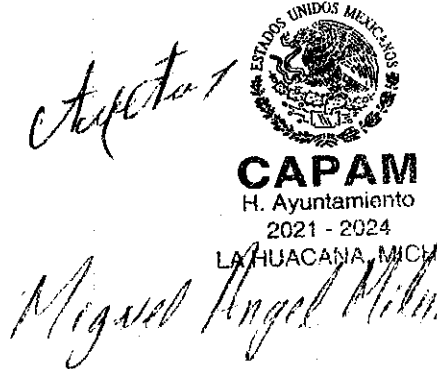 ESTADOS UNIDOS MEXICANOS
CAPAM
H. Ayuntamiento
2021 - 2024
LA HUACANA, MICH
Miguel Angel